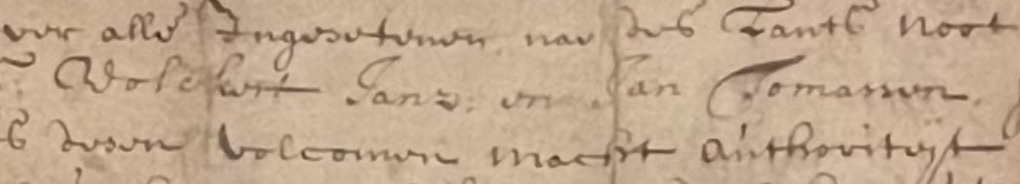 over alle Ingesetenen nae des Lants Noot
Volckert Janz: en Jan Tomassen.
s desen volcomen macht Authoriteyt